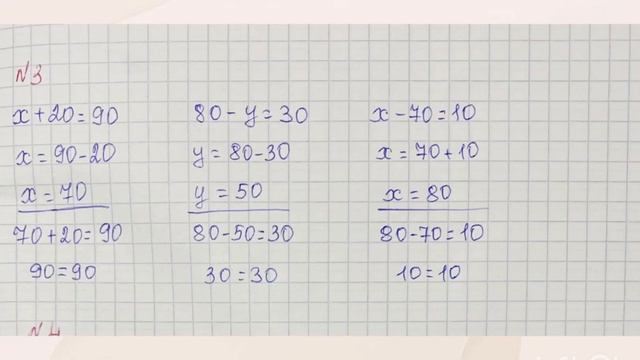 N3
x + 20 = 90
x = 90 - 20
x = 70
70 + 20 = 90
90 = 90
80 - y = 30
y = 80 - 30
y = 50
80 - 50 = 30
30 = 30
x - 70 = 10
x = 70 + 10
x = 80
80 - 70 = 10
10 = 10